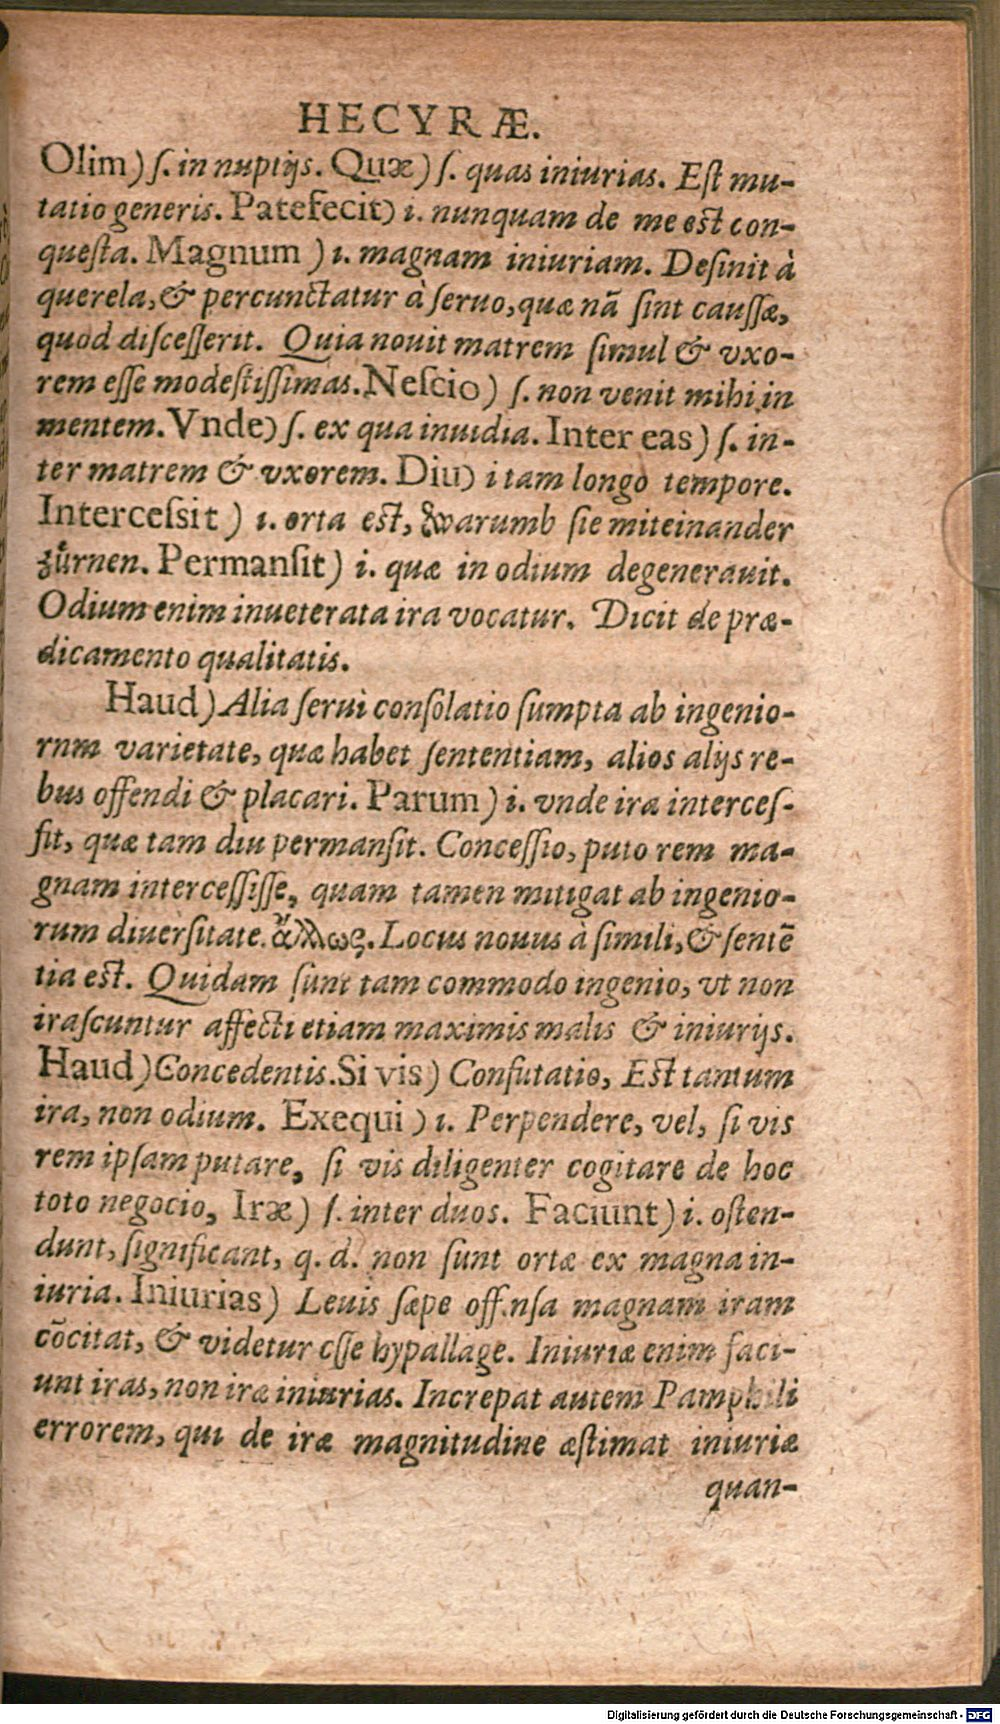 HECYRÆ.
Olim) ſ. in nuptijs. Quæ) ſ. quas iniurias. Eſt mu-
tatio generis. Patefecit) i. nunquam de me est con-
queſta. Magnum ) i. magnam iniuriam. Deſinit à
querela, & percunctatur à ſeruo, quæ nã ſint cauſſæ,
quod diſceſſerit. Quia nouit matrem ſimul & vxo-
rem eſſe modeſtiſſimas. Neſcio) ſ. non venit mihi in
mentem. Vnde) ſ. ex qua inuidia. Inter eas) ſ. in-
ter matrem & vxorem. Diu) i tam longo tempore.
Interceſsit ) i. orta eſt, warumb ſie miteinander
zuͤrnen. Permanſit) i. quæ in odium degenerauit.
Odium enim inueterata ira vocatur. Dicit de præ-
dicamento qualitatis.
Haud) Alia ſerui conſolatio ſumpta ab ingenio-
rnm varietate, quæ habet ſententiam, alios alijs re-
bus offendi & placari. Parum) i. vnde ira interceſ-
ſit, quæ tam diu permanſit. Conceſſio, puto rem ma-
gnam interceſſiſſe, quam tamen mitigat ab ingenio-
rum diuerſitate. ἄλλως. Locus nouus à ſimili, & ſentẽ
tia est. Quidam ſunt tam commodo ingenio, vt non
iraſcuntur affecti etiam maximis malis & iniurijs.
Haud) Concedentis. Si vis) Confutatio, Eſt tantum
ira, non odium. Exequi) i. Perpendere, vel, ſi vis
rem ipſam putare, ſi vis diligenter cogitare de hoc
toto negocio, Iræ) ſ. inter duos. Faciunt) i. oſten-
dunt, ſignificant, q. d. non ſunt ortæ ex magna in-
iuria. Iniurias) Leuis ſæpe off.nſa magnam iram
cõcitat, & videtur eſſe hypallage. Iniuriæ enim faci-
unt iras, non iræ iniurias. Increpat autem Pamphili
errorem, qui de iræ magnitudine æſtimat iniuriæ
quan-
Digitalisierung gefördert durch die Deutsche Forschungsgemeinschaft - DFG